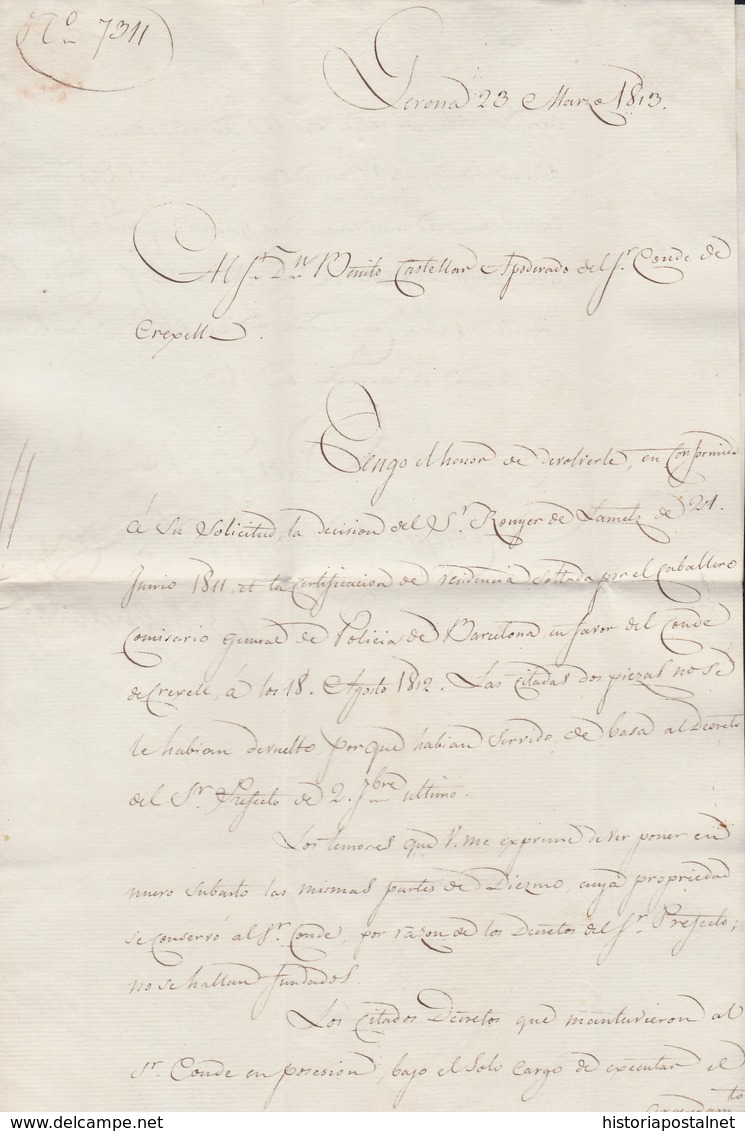 Nº 7311
Gerona 23 Marzo 1813.
Al Sr. Dn. Benito Castellar Apoderado del Sr. Conde de
Crexell.
Tengo el honor de devolverle, en conformidad
á su solicitud, la decision del Sr. Rouyer de Lametz de 21.
Junio 1811, et la Certificacion de residencia soltada por el Caballero
Comisario general de Policia de Barcelona en favor del Conde
de Crexell, á los 18. Agosto 1812. Las citadas dos piezas no se
le habian devuelto, por que habian servido de basa al Decreto
del Sr. Prefecto de 2. 7bre ultimo.
Los temores que V.me exprime de ver poner en
nuevo subasto las mismas partes de Diezmo, cuya propriedad
se conservó al Sr. Conde, por razon de los Decretos del Sr. Prefecto;
no se hallan fundados.
Los citados Decretos que mantuvieron al
Sr. Conde en posesion, bajo el solo cargo de executar el
historiapostalnet
www.delcampe.net